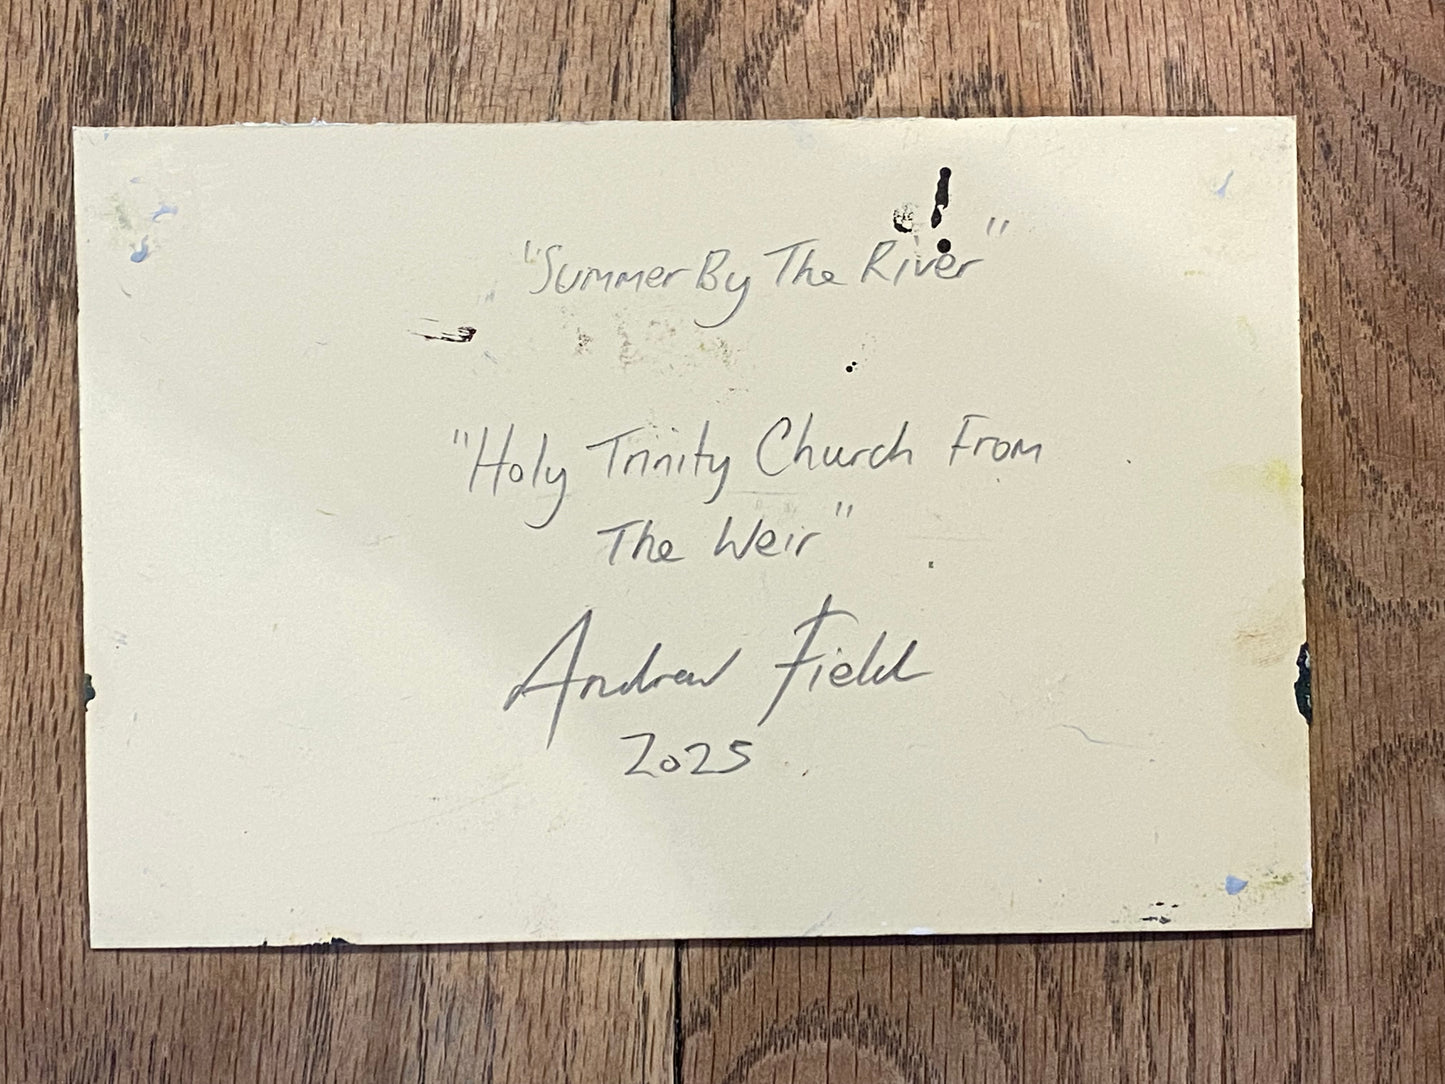 "Summer By The River"
"Holy Trinity Church From
The Weir"
Andrew Field
2025